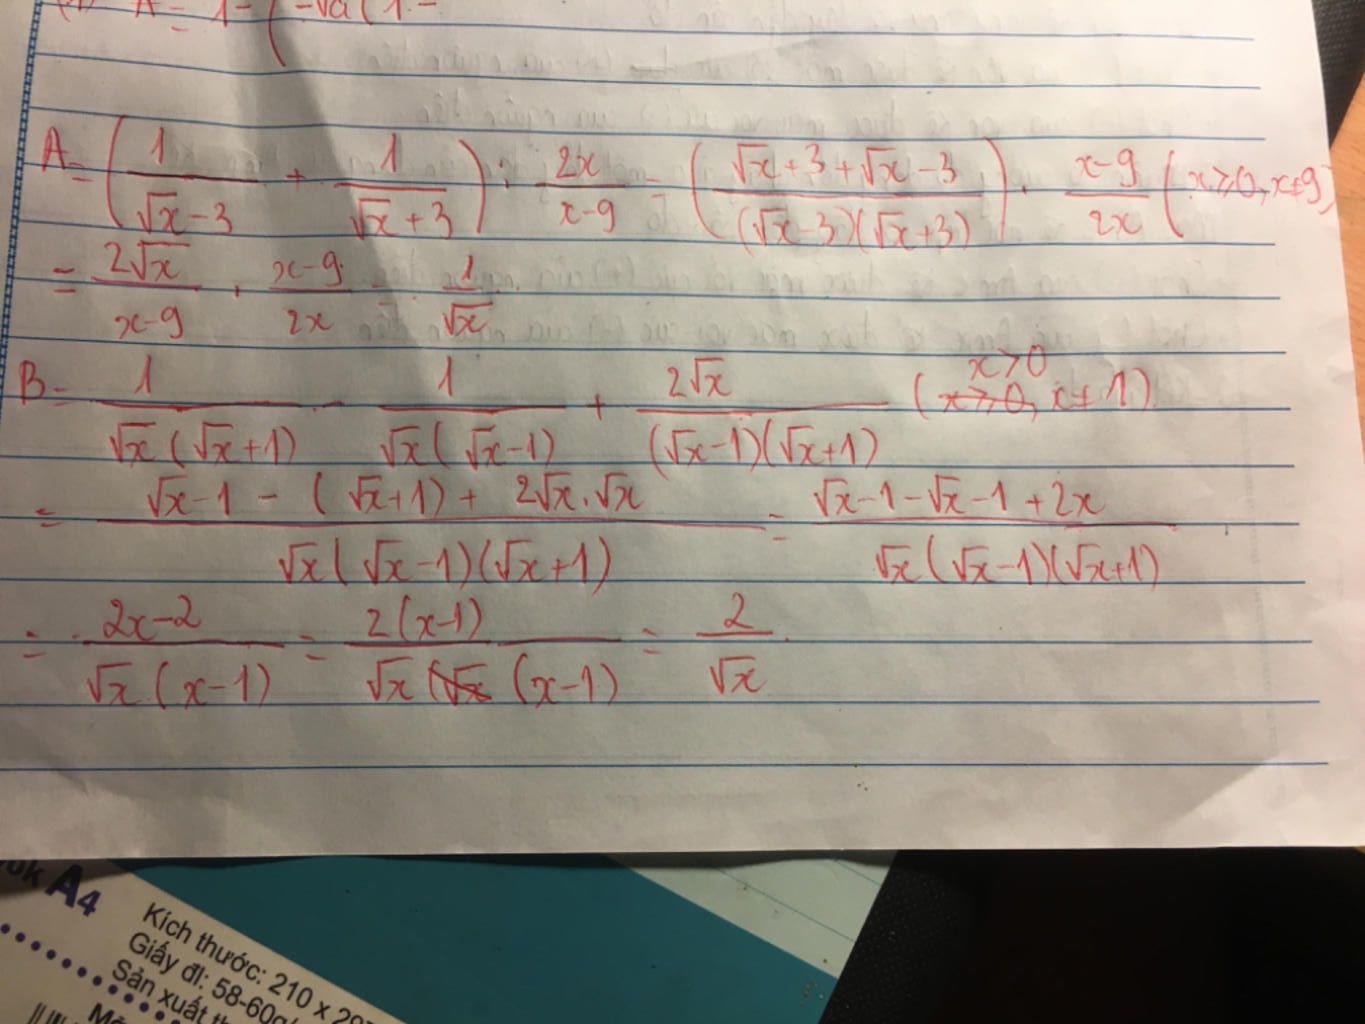 A = 1 - ( -√a ( 1 -
A = ( 1/(√x - 3) + 1/(√x + 3) ) : 2x/(x-9) = ( (√x + 3 + √x - 3)/((√x - 3)(√x + 3)) ) . (x-9)/2x ( x ≥ 0, x ≠ 9)
= 2√x/(x-9) . (x-9)/2x = 1/√x
x > 0
B = 1/(√x (√x + 1)) - 1/(√x (√x - 1)) + 2√x/((√x - 1)(√x + 1)) ( x ≥ 0, x ≠ 1)
= (√x - 1 - (√x + 1) + 2√x . √x)/(√x (√x - 1)(√x + 1)) = (√x - 1 - √x - 1 + 2x)/(√x (√x - 1)(√x + 1))
= (2x - 2)/(√x (x - 1)) = 2(x - 1)/(√x (x - 1)) = 2/√x
A4
Kích thước: 210 x 297
Giấy đl: 58-60g/
Sản xuất th